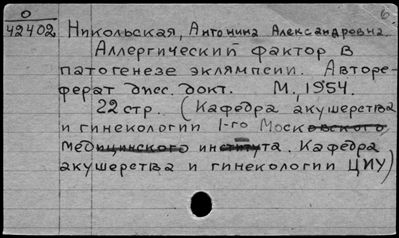 6
О
42402
Никольская, Антонина Александровна.
Аллергический фактор в
патогенезе эклямпсии. Авторе-
ферат дисс. докт. М., 1954.
22 стр. (Кафедра акушерства
и гинекологии 1-го Московского
медицинского института. Кафедра
акушерства и гинекологии ЦИУ)